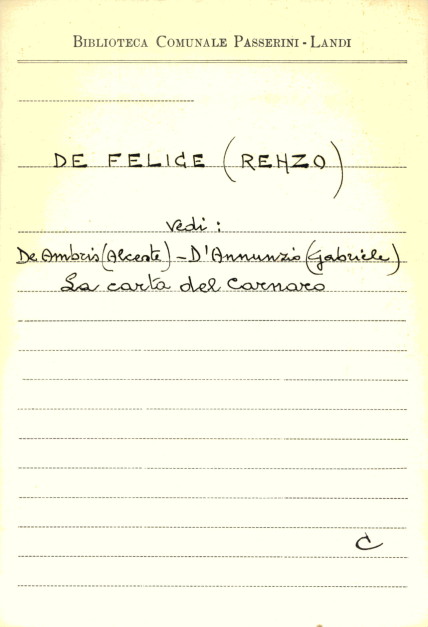 BIBLIOTECA COMUNALE PASSERINI - LANDI
DE FELICE (RENZO)
Vedi:
De Ambris (Alceste) - D'Annunzio (Gabriele)
La carta del Carnaro
C